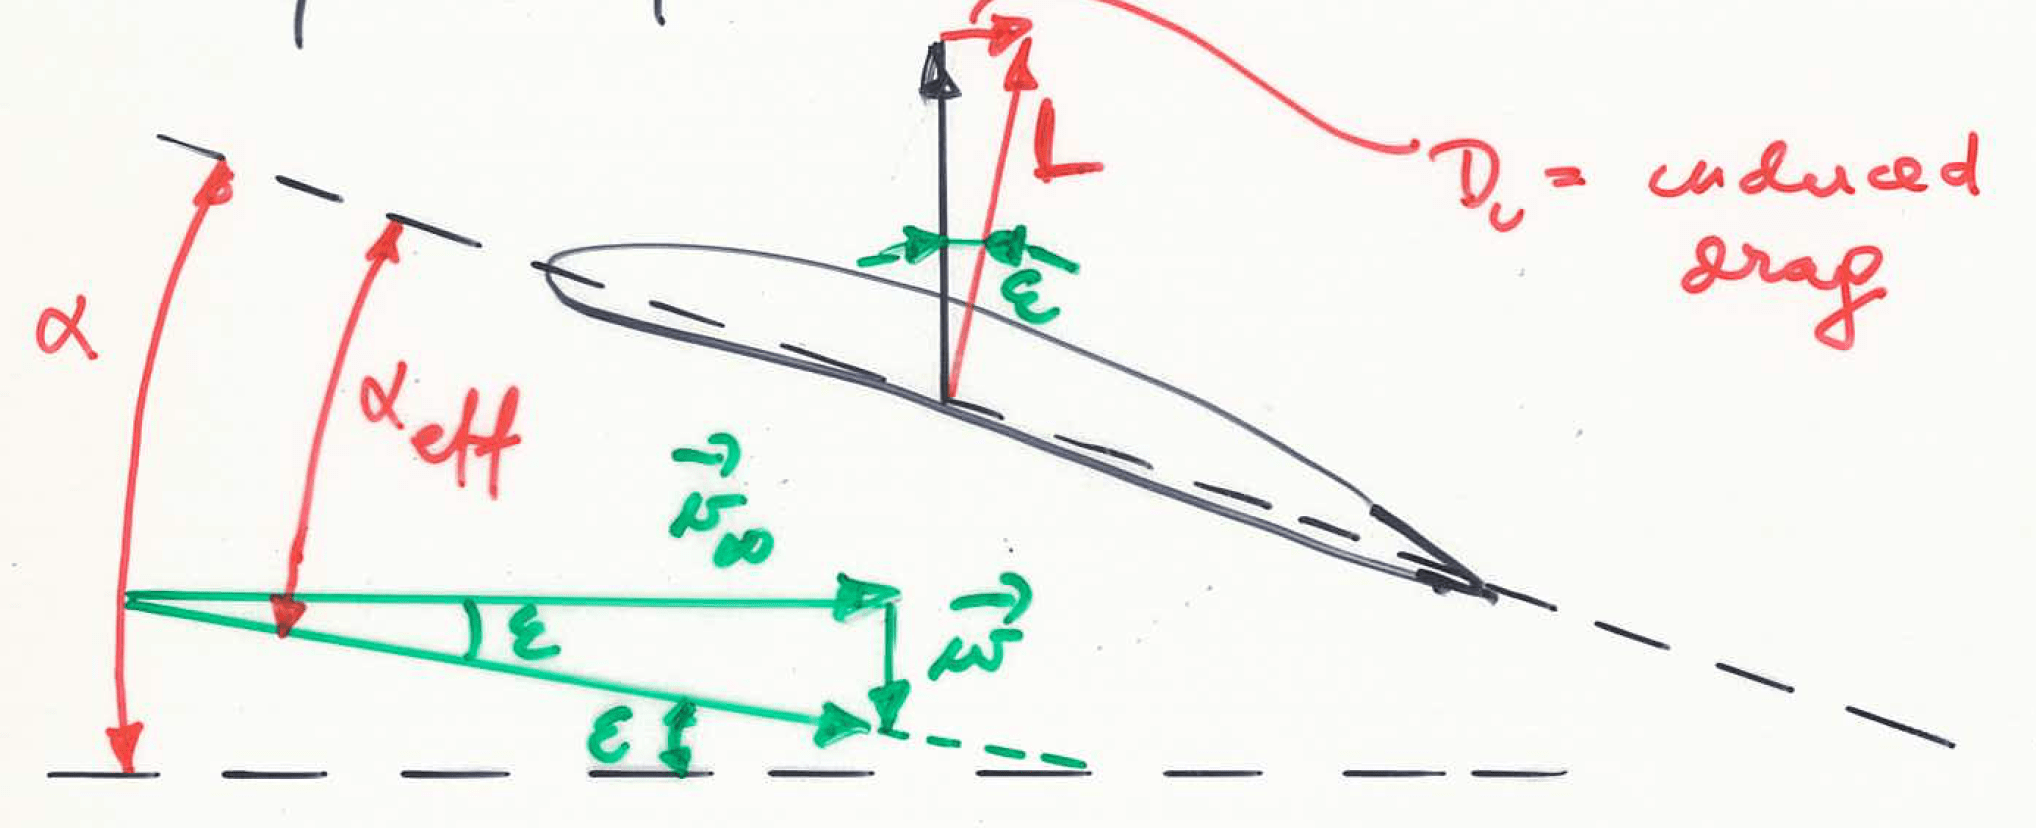 L
D_i = induced
drag
ε
α
α_eff
v⃗_∞
ε
w⃗
ε